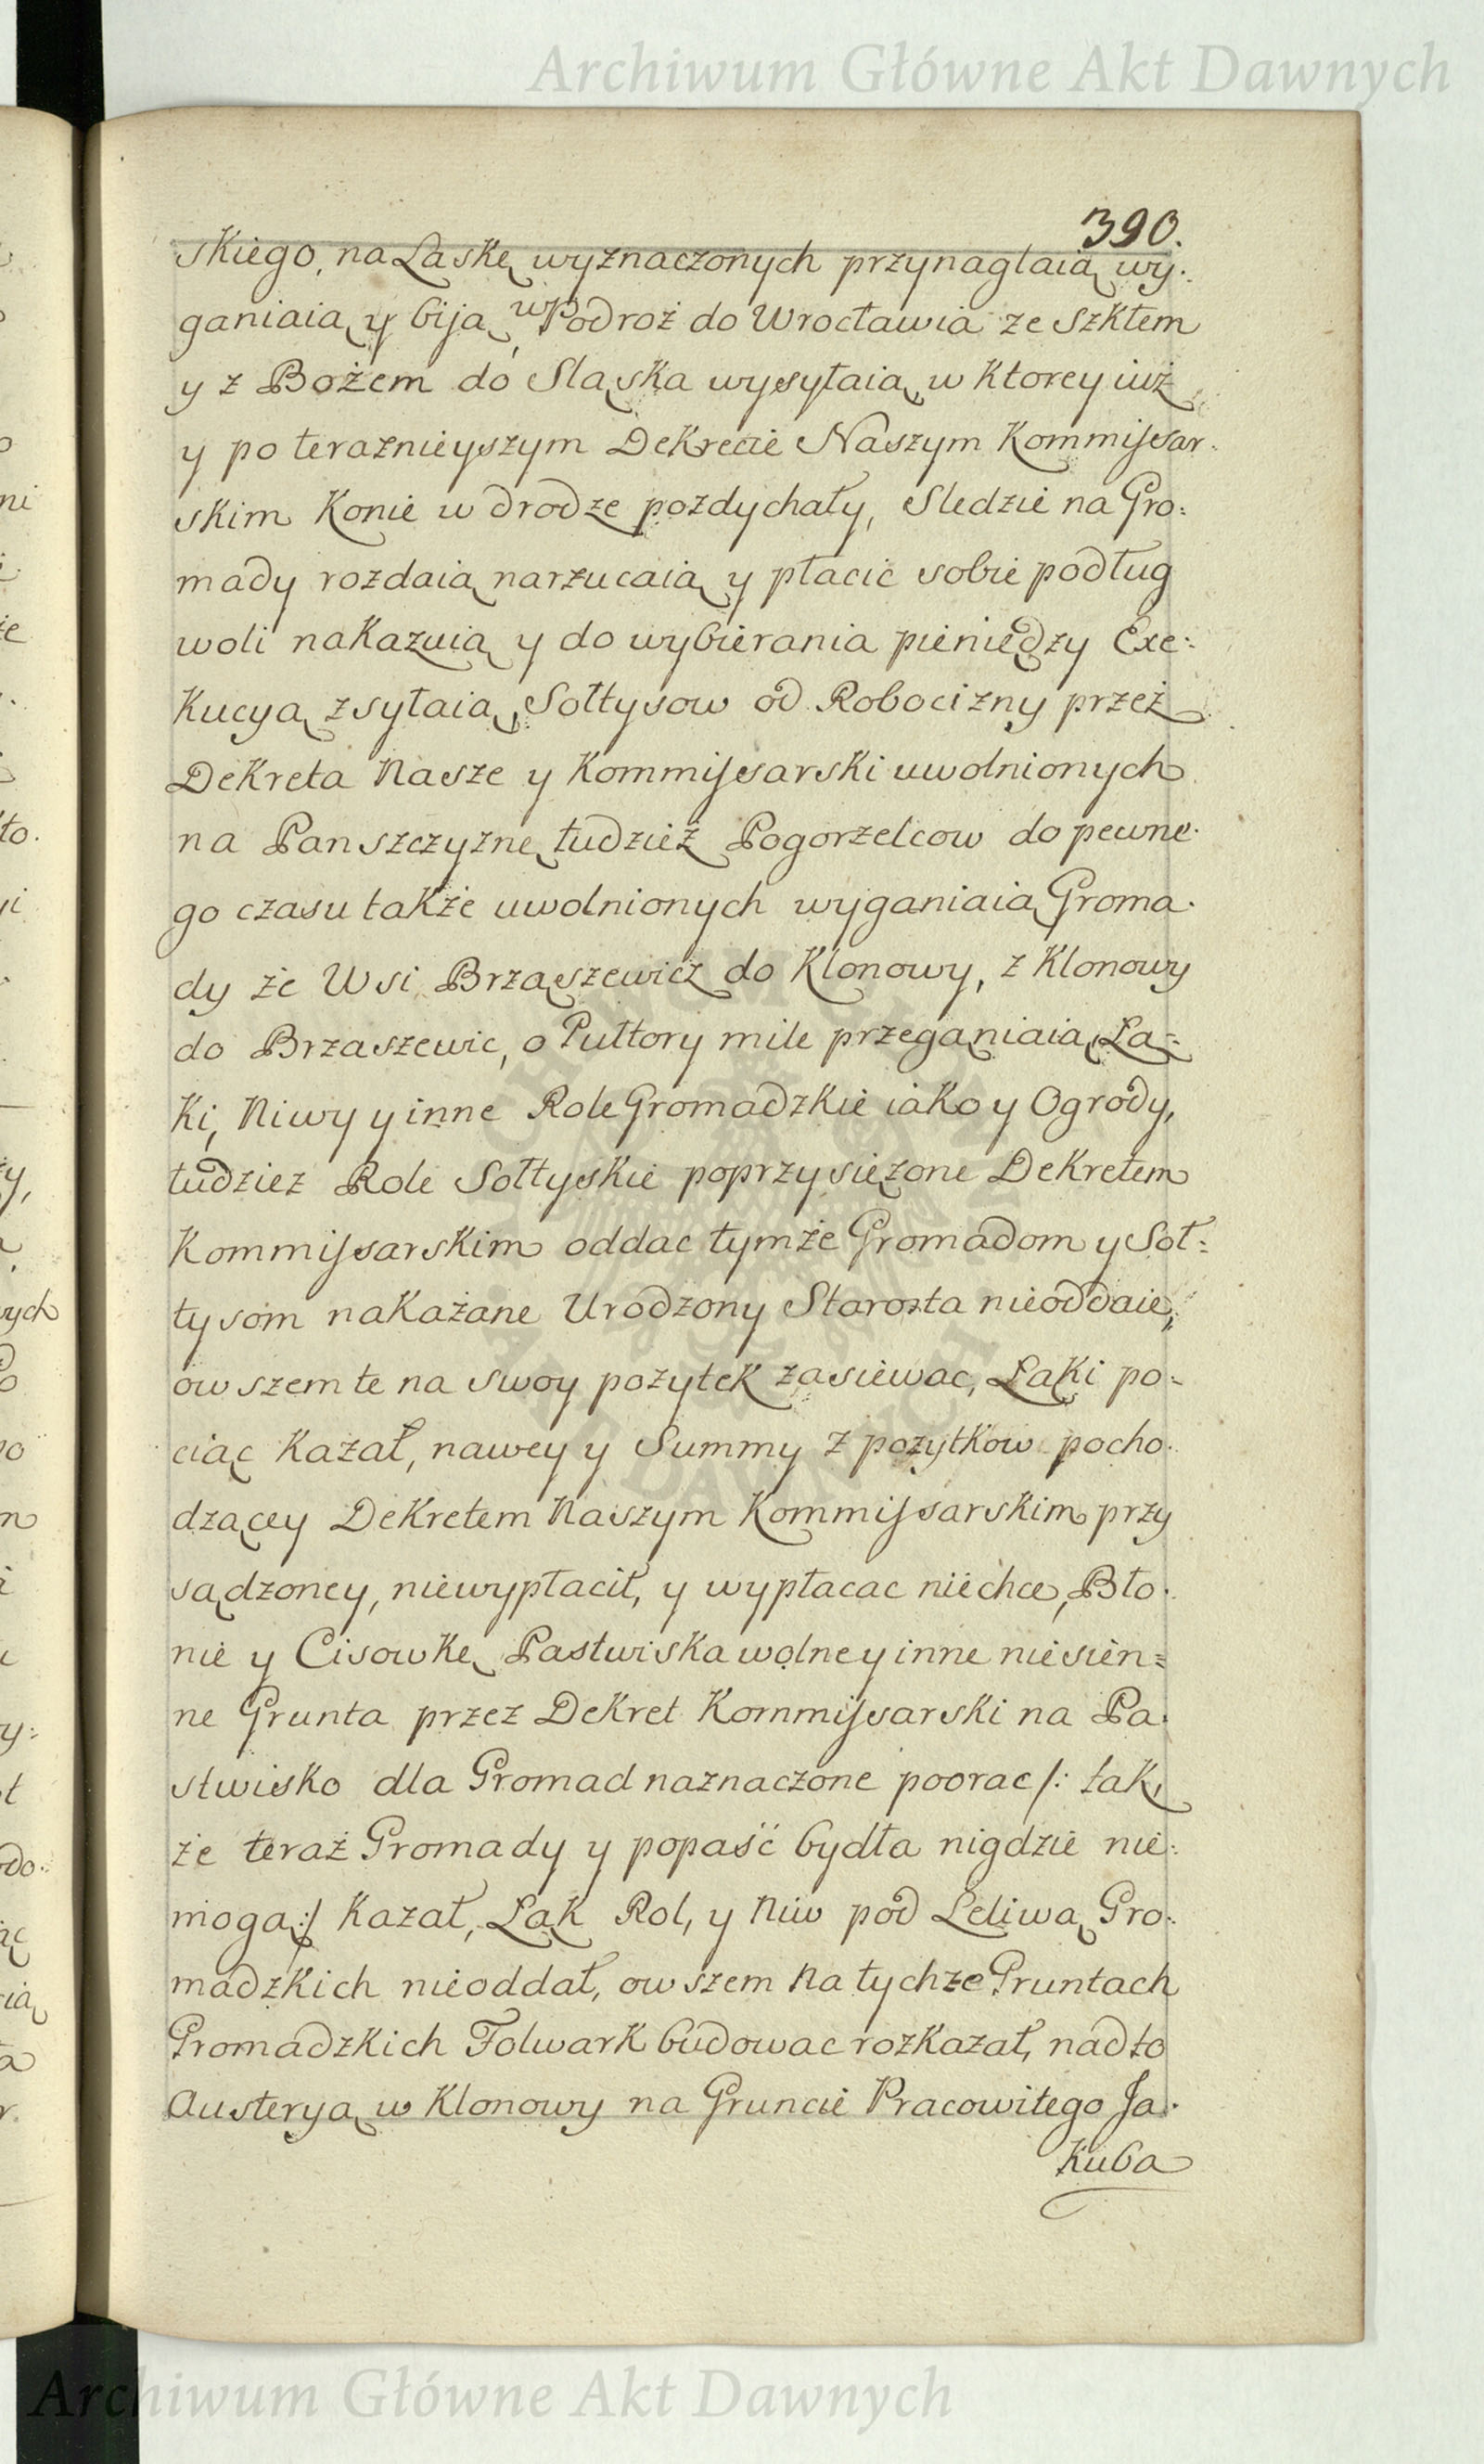 Archiwum Główne Akt Dawnych
390.
skiego, na Laskę wyznaczonych przynaglaią wy:
ganiaią y biją, w Podroż do Wrocławia ze Szkłem
y z Bożem do Sląska wysyłaią, w ktorey iuż
y po teraznieyszym Dekrecie Naszym Kommissar:
skim Konie w drodze pozdychały, Sledzie na Gro:
mady rozdaią narzucaią y płacic sobie podług
woli nakazuią y do wybierania pieniędzy Exe:
kucyą zsyłaią, Sołtysow od Robocizny przez
Dekreta Nasze y Kommissarski uwolnionych
na Panszczyznę tudzież Pogorzelcow do pewne:
go czasu także uwolnionych wyganiaią Groma:
dy że Wsi Brzązewicz do Klonowy, z Klonowy
do Brzaszewic, o Pułtory mile przeganiaią, Łą=
ki, Niwy y inne Role Gromadzkie iako y Ogrody,
tudziez Role Sołtyskie poprzysiężone Dekretem
Kommissarskim oddac tymże Gromadom y Soł:
tysom nakażane Urodzony Starosta nieoddaie,
owszem te na swoy pozytek zasiewac, Łąki po=
ciąc Kazał, nawey y Summy z pozytkow pocho:
dzącey Dekretem Naszym Kommissarskim przy
sądzoney, niewypłacił, y wypłacac niechce, Bło:
nie y Cisowkę Pastwiska wolne y inne niesien=
ne Grunta przez Dekret Kommissarski na Pa:
stwisko dla Gromad naznaczone poorac /: tak,
że teraż Gromady y popaść bydła nigdzie nie:
mogą :/ Kazał, Łąk Rol, y Niw pod Leliwą Gro:
madzkich nieoddał, owszem na tychze Gruntach
Gromadzkich Folwark budowac rozkazał, nadto
Austeryą w Klonowy na Gruncie Pracowitego Ja:
kuba
Archiwum Główne Akt Dawnych